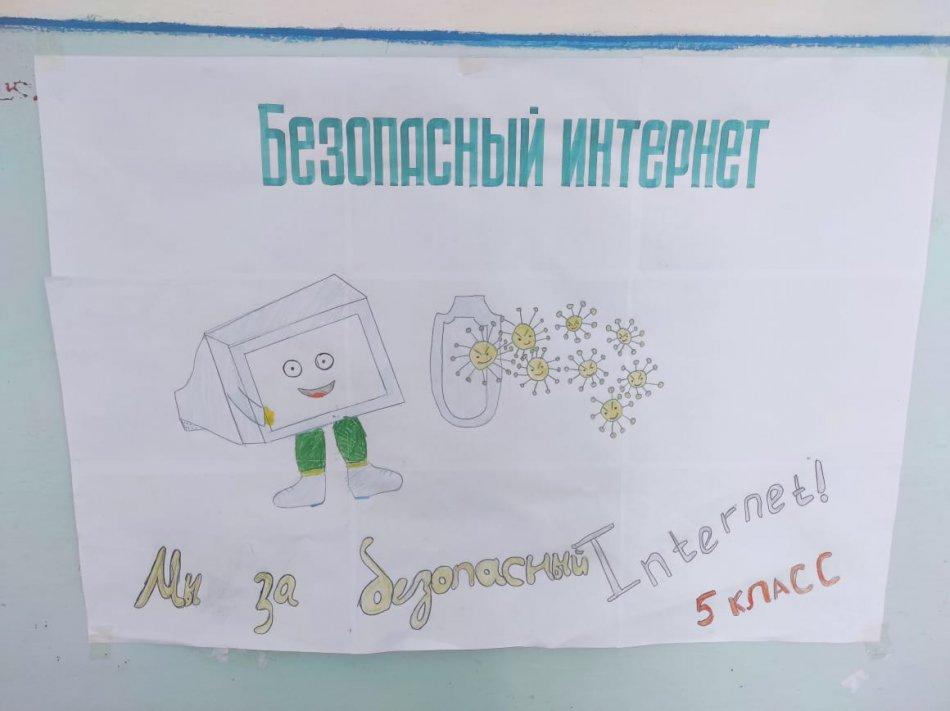 Безопасный интернет
Мы за безопасный Internet!
5 класс